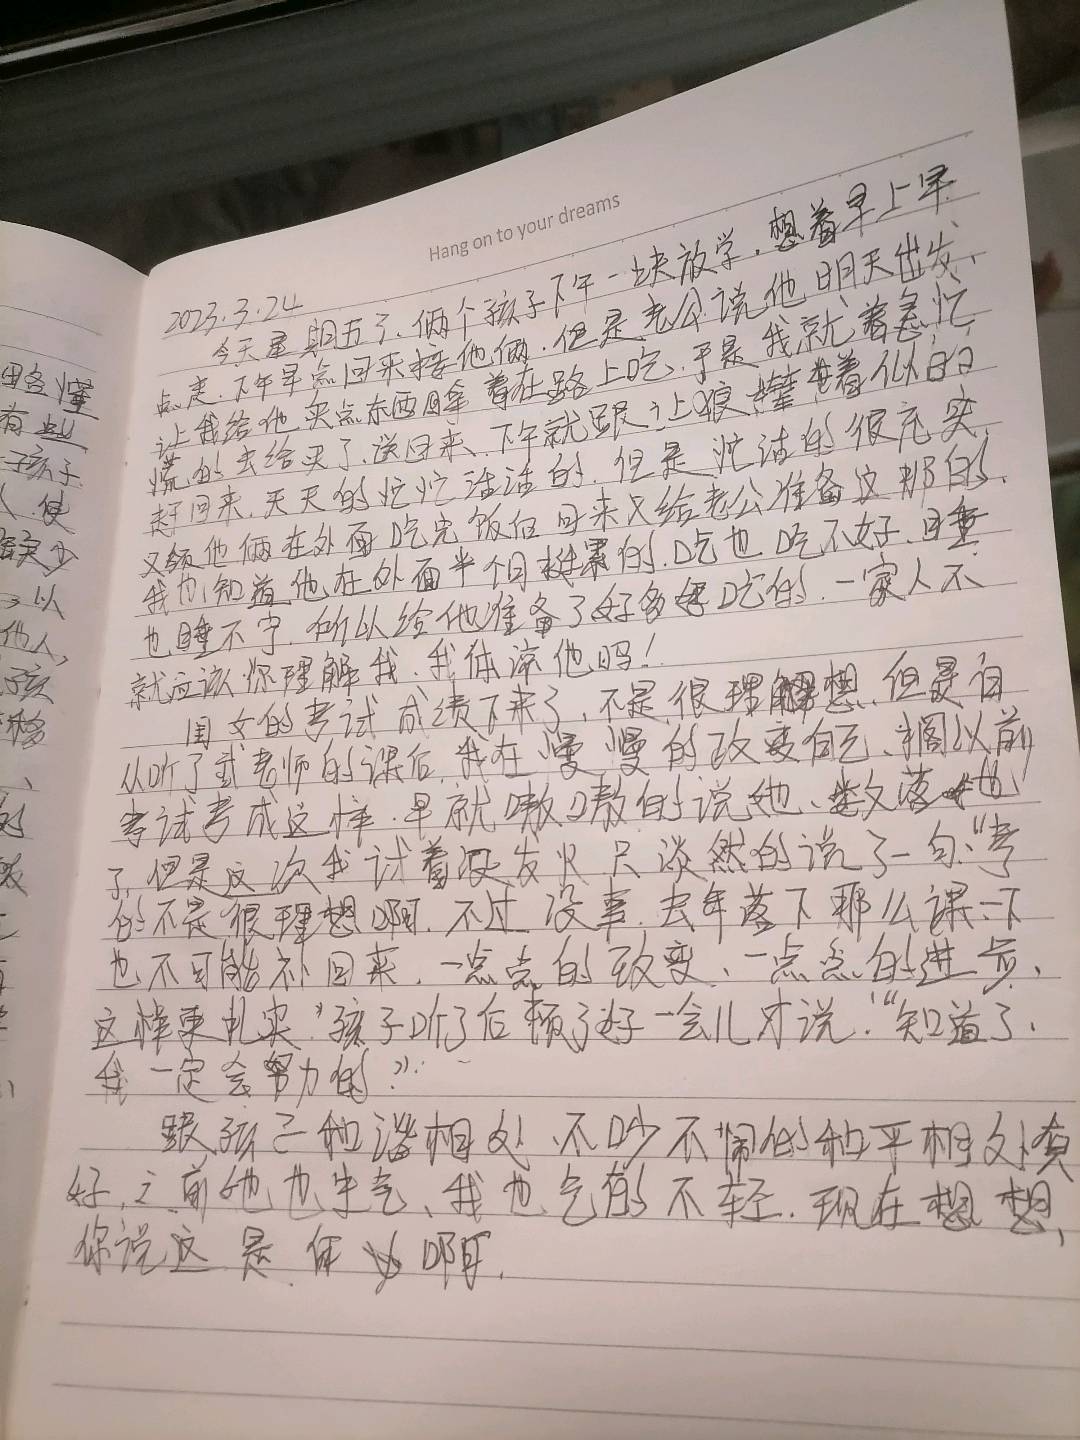 Hang on to your dreams
2023.3.24
今天星期五了、俩个孩子下午一块放学，想着早上早
点走、下午早点回来接他俩、但是老公说他明天出发、
让我给他买点东西拿着在路上吃、于是我就着急忙
慌的去给买了、送回来、下午就跟让狼撵着似的
赶回来、天天的忙忙活活的、但是忙活的很充实、
又领他俩在外面吃完饭后回来又给老公准备这那的、
我也知道他在外面半个月挺累的、吃也吃不好、睡
也睡不宁、所以给他准备了好多好吃的、一家人不
就应该你理解我、我体谅他吗！
闺女的考试成绩下来了、不是很理想、但是自
从听了武老师的课后、我在慢慢的改变自己、搁以前
考试考成这样、早就嗷嗷的说她、数落她
了、但是这次我试着没发火只淡然的说了一句：“考
的不是很理想啊、不过没事、去年落下那么课一下
也不可能补回来、一点点的改变、一点点的进步、
这样更扎实”孩子听了后顿了好一会儿才说：“知道了、
我一定会努力的”
跟孩子和谐相处、不吵不闹的和平相处真
好、之前她也生气、我也气的不轻、现在想想、
你说这是何必啊、
用名懂
有些
子孩子
使
少
以
他人,
孩
移